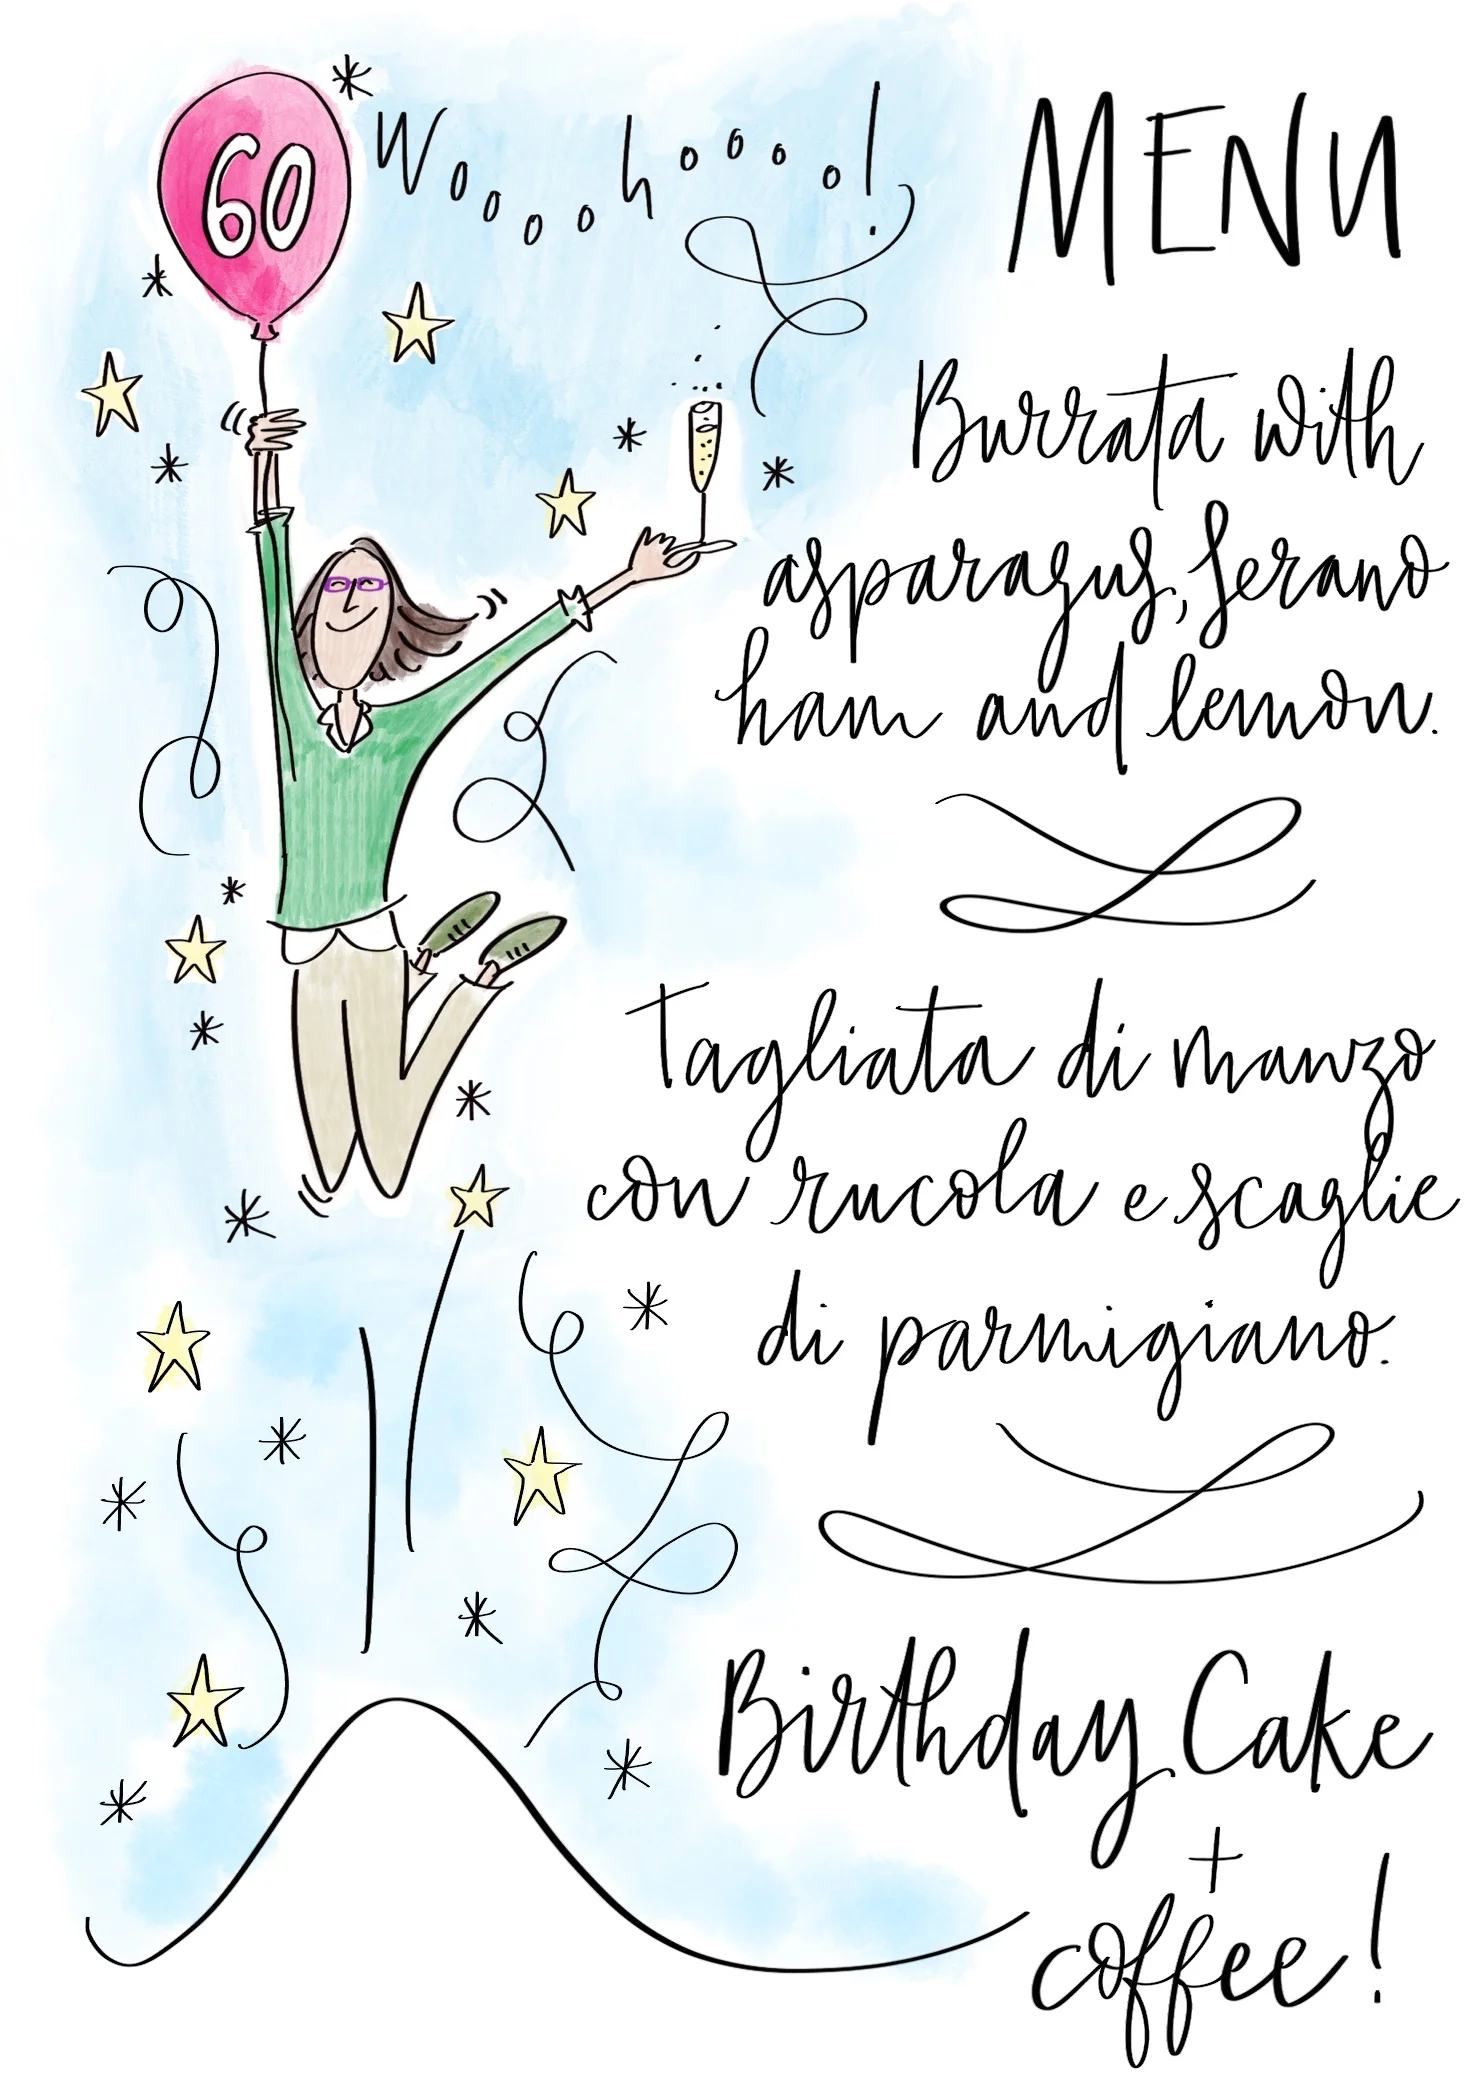 60
Woooohoooo!
MENU
Burrata with
asparagus, Serano
ham and lemon.
Tagliata di manzo
con rucola e scaglie
di parmigiano.
Birthday Cake
+
coffee!